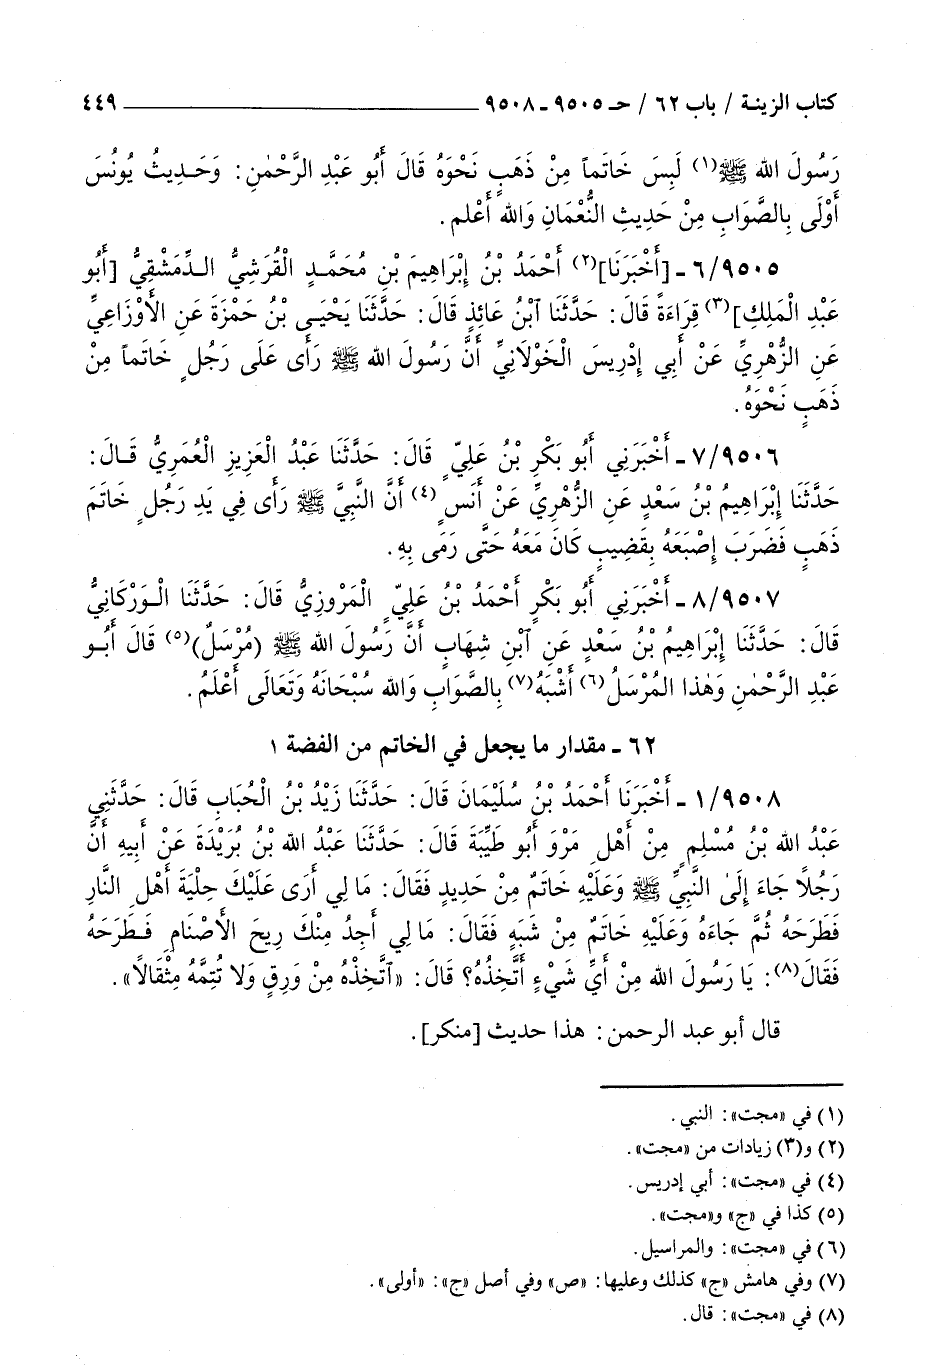 كتاب الزينة / باب ٦٢ / حـ ٩٥٠٥ ـ ٩٥٠٨ ٤٤٩
رَسُولَ الله ﷺ(١) لَبِسَ خَاتَماً مِنْ ذَهَبٍ نَحْوَهُ قَالَ أَبُو عَبْدِ الرَّحْمٰنِ: وَحَدِيثُ يُونُسَ
أَوْلَى بِالصَّوَابِ مِنْ حَدِيثِ النُّعْمَانِ وَالله أَعْلم.
٦/٩٥٠٥ ـ [أَخْبَرَنَا](٢) أَحْمَدُ بْنُ إِبْرَاهِيمَ بْنِ مُحَمَّدٍ الْقُرَشِيُّ الدِّمَشْقِيُّ [أَبُو
عَبْدِ الْمَلِكِ](٣) قِرَاءَةً قَالَ: حَدَّثَنَا ٱبْنُ عَائِذٍ قَالَ: حَدَّثَنَا يَحْيَى بْنُ حَمْزَةَ عَنِ الأَوْزَاعِيِّ
عَنِ الزُّهْرِيِّ عَنْ أَبِي إِدْرِيسَ الْخَوْلاَنِيِّ أَنَّ رَسُولَ الله ﷺ رَأَى عَلَى رَجُلٍ خَاتَماً مِنْ
ذَهَبٍ نَحْوَهُ.
٧/٩٥٠٦ ـ أَخْبَرَنِي أَبُو بَكْرِ بْنُ عَلِيٍّ قَالَ: حَدَّثَنَا عَبْدُ الْعَزِيزِ الْعُمَرِيُّ قَالَ:
حَدَّثَنَا إِبْرَاهِيمُ بْنُ سَعْدٍ عَنِ الزُّهْرِيِّ عَنْ أَنَسٍ(٤) أَنَّ النَّبِيَّ ﷺ رَأَى فِي يَدِ رَجُلٍ خَاتَمَ
ذَهَبٍ فَضَرَبَ إِصْبَعَهُ بِقَضِيبٍ كَانَ مَعَهُ حَتَّى رَمَى بِهِ.
٨/٩٥٠٧ ـ أَخْبَرَنِي أَبُو بَكْرٍ أَحْمَدُ بْنُ عَلِيٍّ الْمَرْوزِيُّ قَالَ: حَدَّثَنَا الْوَرْكَانِيُّ
قَالَ: حَدَّثَنَا إِبْرَاهِيمُ بْنُ سَعْدٍ عَنِ ٱبْنِ شِهَابٍ أَنَّ رَسُولَ الله ﷺ (مُرْسَلٌ)(٥) قَالَ أَبُو
عَبْدِ الرَّحْمٰنِ وَهٰذا المُرْسَلُ(٦) أَشْبَهُ(٧) بِالصَّوَابِ وَالله سُبْحَانَهُ وَتَعَالَى أَعْلَمُ.
٦٢ ـ مقدار ما يجعل في الخاتم من الفضة ١
١/٩٥٠٨ ـ أَخْبَرَنَا أَحْمَدُ بْنُ سُلَيْمَانَ قَالَ: حَدَّثَنَا زَيْدُ بْنُ الْحُبَابِ قَالَ: حَدَّثَنِي
عَبْدُ الله بْنُ مُسْلِمٍ مِنْ أَهْلِ مَرْوَ أَبُو طَيِّبَةَ قَالَ: حَدَّثَنَا عَبْدُ الله بْنُ بُرَيْدَةَ عَنْ أَبِيهِ أَنَّ
رَجُلاً جَاءَ إِلَىٰ النَّبِيِّ ﷺ وَعَلَيْهِ خَاتَمٌ مِنْ حَدِيدٍ فَقَالَ: مَا لِي أَرَى عَلَيْكَ حِلْيَةَ أَهْلِ النَّارِ
فَطَرَحَهُ ثُمَّ جَاءَهُ وَعَلَيْهِ خَاتَمٌ مِنْ شَبَهٍ فَقَالَ: مَا لِي أَجِدُ مِنْكَ رِيحَ الأَصْنَامِ فَطَرَحَهُ
فَقَالَ(٨): يَا رَسُولَ الله مِنْ أَيِّ شَيْءٍ أَتَّخِذُهُ؟ قَالَ: «ٱتَّخِذْهُ مِنْ وَرِقٍ وَلا تُتِمَّهُ مِثْقَالاً».
قال أبو عبد الرحمن: هذا حديث [منكر].
(١) في «مجت»: النبي.
(٢) و(٣) زيادات من «مجت».
(٤) في «مجت»: أبي إدريس.
(٥) كذا في «ج» و«مجت».
(٦) في «مجت»: والمراسيل.
(٧) وفي هامش «ج» كذلك وعليها: «ص» وفي أصل «ج»: «أولى».
(٨) في «مجت»: قال.